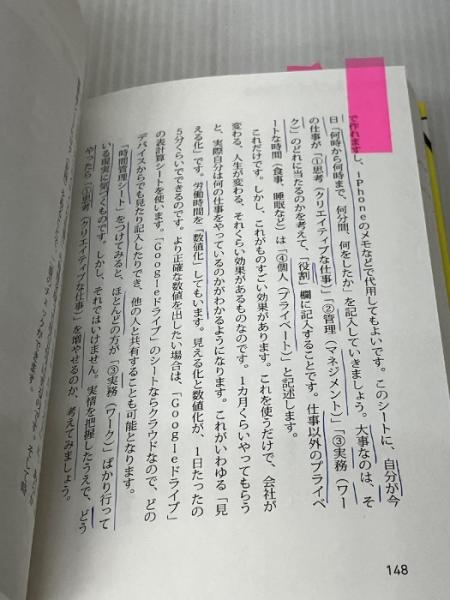 で作れますし、iPhoneのメモなどで代用してもよいです。このシートに、自分が今
日「何時から何時まで、何分間、何をしたか」を記入していきましょう。大事なのは、そ
の仕事が「①思考（クリエイティブな仕事）」「②管理（マネジメント）」「③実務（ワー
ク）」のどれに当たるのかを考えて、「役割」欄に記入することです。仕事以外のプライベ
ートな時間（食事、睡眠など）は「④個人（プライベート）」と記述します。
これだけです。しかし、これがものすごい効果があります。これを使うだけで、会社が
変わる、人生が変わる、それくらい効果があるものなのです。1カ月くらいやってもらう
と、実際自分は何の仕事をやっているのかがわかるようになります。これがいわゆる「見
える化」です。労働時間を「数値化」してもいます。見える化と数値化が、1日たったの
5分くらいでできるのです。より正確な数値を出したい場合は、「Googleドライブ」
の表計算シートを使います。「Googleドライブ」のシートならクラウドなので、どの
デバイスからでも見たり記入したりでき、他の人と共有することも可能となります。
「時間管理シート」をつけてみると、ほとんどの方が「③実務（ワーク）」ばかり行って
いる現実に気づくものです。しかし、それではいけません。実情を把握したうえで、どう
やったら「①思考（クリエイティブな仕事）」を増やせるのか、考えてみましょう。
148